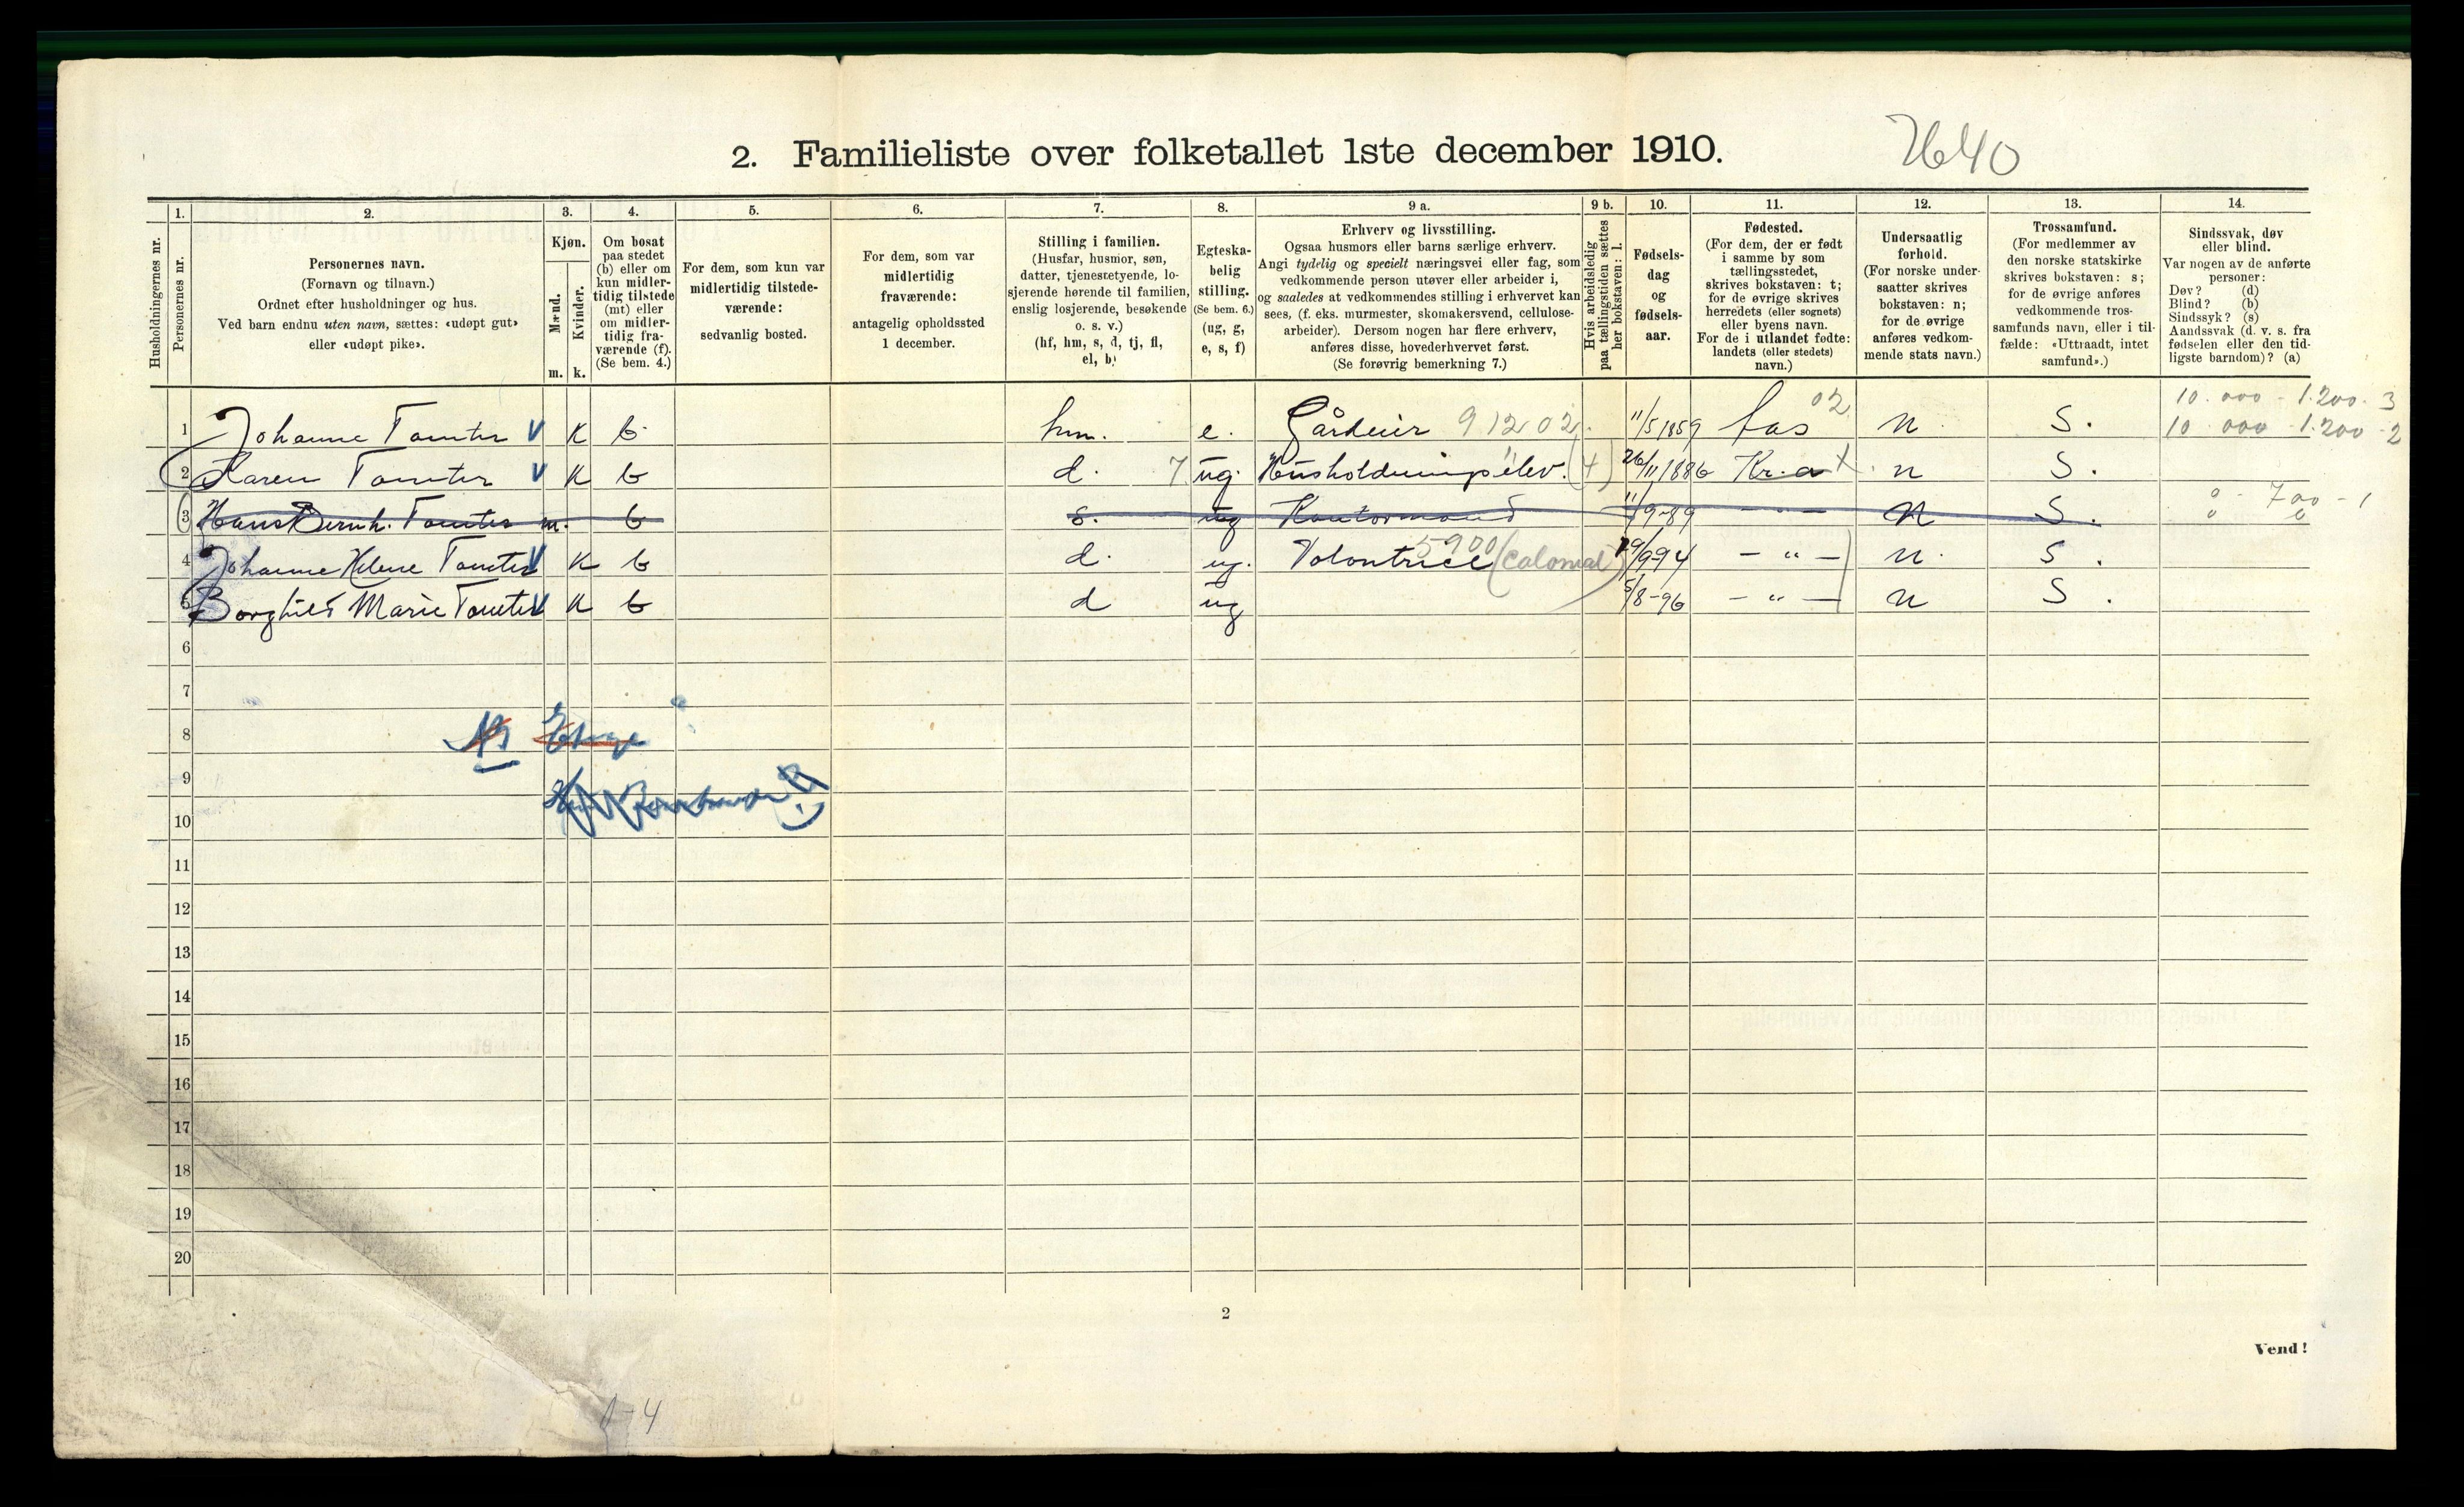 2. Familieliste over folketallet 1ste december 1910.
2640
1. 2. 3. 4. 5. 6. 7. 8. 9 a. 9 b. 10. 11. 12. 13. 14.
Husholdningernes nr.
Personernes nr.
Personernes navn.
(Fornavn og tilnavn.)
Ordnet efter husholdninger og hus.
Ved barn endnu uten navn, sættes: «udøpt gut»
eller «udøpt pike».
Kjøn.
Mænd.
m.
Kvinder.
k.
Om bosat
paa stedet
(b) eller om
kun midler-
tidig tilstede
(mt) eller
om midler-
tidig fra-
værende (f).
(Se bem. 4.)
For dem, som kun var
midlertidig tilstede-
værende:
sedvanlig bosted.
For dem, som var
midlertidig
fraværende:
antagelig opholdssted
1 december.
Stilling i familien.
(Husfar, husmor, søn,
datter, tjenestetyende, lo-
sjerende hørende til familien,
enslig losjerende, besøkende
o. s. v.)
(hf, hm, s, d, tj, fl,
el, b)
Egteska-
belig
stilling.
(Se bem. 6.)
(ug, g,
e, s, f)
Erhverv og livsstilling.
Ogsaa husmors eller barns særlige erhverv.
Angi tydelig og specielt næringsvei eller fag, som
vedkommende person utøver eller arbeider i,
og saaledes at vedkommendes stilling i erhvervet kan
sees, (f. eks. murmester, skomakersvend, cellulose-
arbeider). Dersom nogen har flere erhverv,
anføres disse, hovederhvervet først.
(Se forøvrig bemerkning 7.)
Hvis arbeidsledig
paa tællingstiden sættes
her bokstaven: l.
Fødsels-
dag
og
fødsels-
aar.
Fødested.
(For dem, der er født
i samme by som
tællingsstedet,
skrives bokstaven: t;
for de øvrige skrives
herredets (eller sognets)
eller byens navn.
For de i utlandet fødte:
landets (eller stedets)
navn.)
Undersaatlig
forhold.
(For norske under-
saatter skrives
bokstaven: n;
for de øvrige
anføres vedkom-
mende stats navn.)
Trossamfund.
(For medlemmer av
den norske statskirke
skrives bokstaven: s;
for de øvrige anføres
vedkommende tros-
samfunds navn, eller i til-
fælde: «Uttraadt, intet
samfund».)
Sindssvak, døv
eller blind.
Var nogen av de anførte
personer:
Døv? (d)
Blind? (b)
Sindssyk? (s)
Aandssvak (d. v. s. fra
fødselen eller den tid-
ligste barndom)? (a)
02 10.000 - 1.200. 3
1 Johanne Tomter V K b. hm. e. Gårdeier 91202. 11/5 1859 n S. 10 000 1.200 - 2
2 Karen Tomter V K b d. 7. ug. Husholdningselev. (4) 26/11 1886 Kr.a t. n S.
3 Hans Bernh. Tomter m. b s. ug Kontormand 11/9-89 - " - n S. 0 - 700 - 1
4 Johanne Helene Tomter V K b d. ug. Volontrice 5900 (Colonial) 29/9-94 - " - n. S.
5 Borghild Marie Tomter V K b d ug 5/8-96 - " - n S.
6
7
8
9
10
11
12
13
14
15
16
17
18
19
20
2
Vend!
0-4